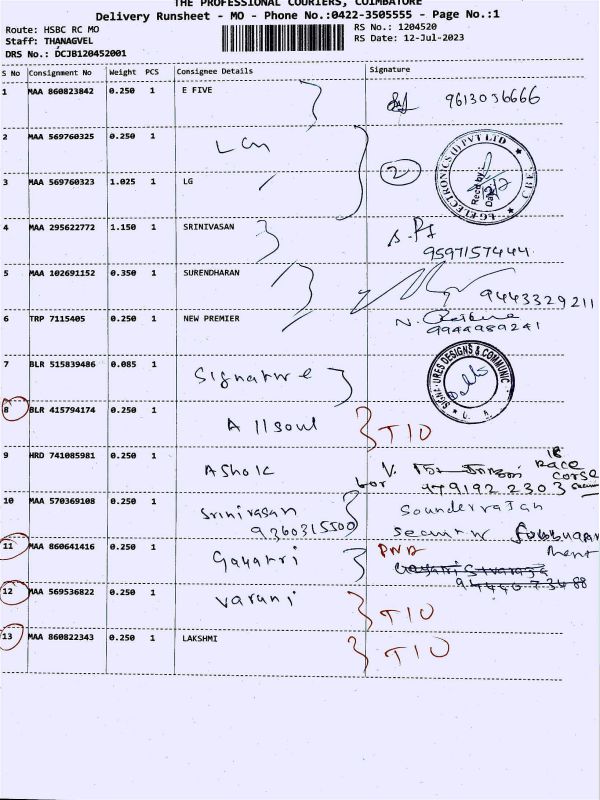 THE PROFESSIONAL COURIERS, COIMBATORE
Delivery Runsheet - MO - Phone No.:0422-3505555 - Page No.:1
Route: HSBC RC MO
Staff: THANAGVEL
DRS No.: DCJB120452001
RS No.: 1204520
RS Date: 12-Jul-2023
S No Consignment No Weight PCS Consignee Details Signature
1 MAA 860823842 0.250 1 E FIVE 9613036666
2 MAA 569760325 0.250 1
LG ELECTRONICS (I) PVT LTD
Recd by
Date
CBE
2
3 MAA 569760323 1.025 1 LG
4 MAA 295622772 1.150 1 SRINIVASAN
9597157444
5 MAA 102691152 0.350 1 SURENDHARAN 9443329211
6 TRP 7115405 0.250 1 NEW PREMIER
9944989241
7 BLR 515839486 0.085 1 Signature
SIGNATURES DESIGNS & COMMUNIC
8 BLR 415794174 0.250 1 Allsoul TIO
9 HRD 741085981 0.250 1 Ashok V.
Race
10 MAA 570369108 0.250 1 Srinivasan Sounderrajan
9360315500
11 MAA 860641416 0.250 1 Gayatri
12 MAA 569536822 0.250 1 Varuni TIO
13 MAA 860822343 0.250 1 LAKSHMI TIO